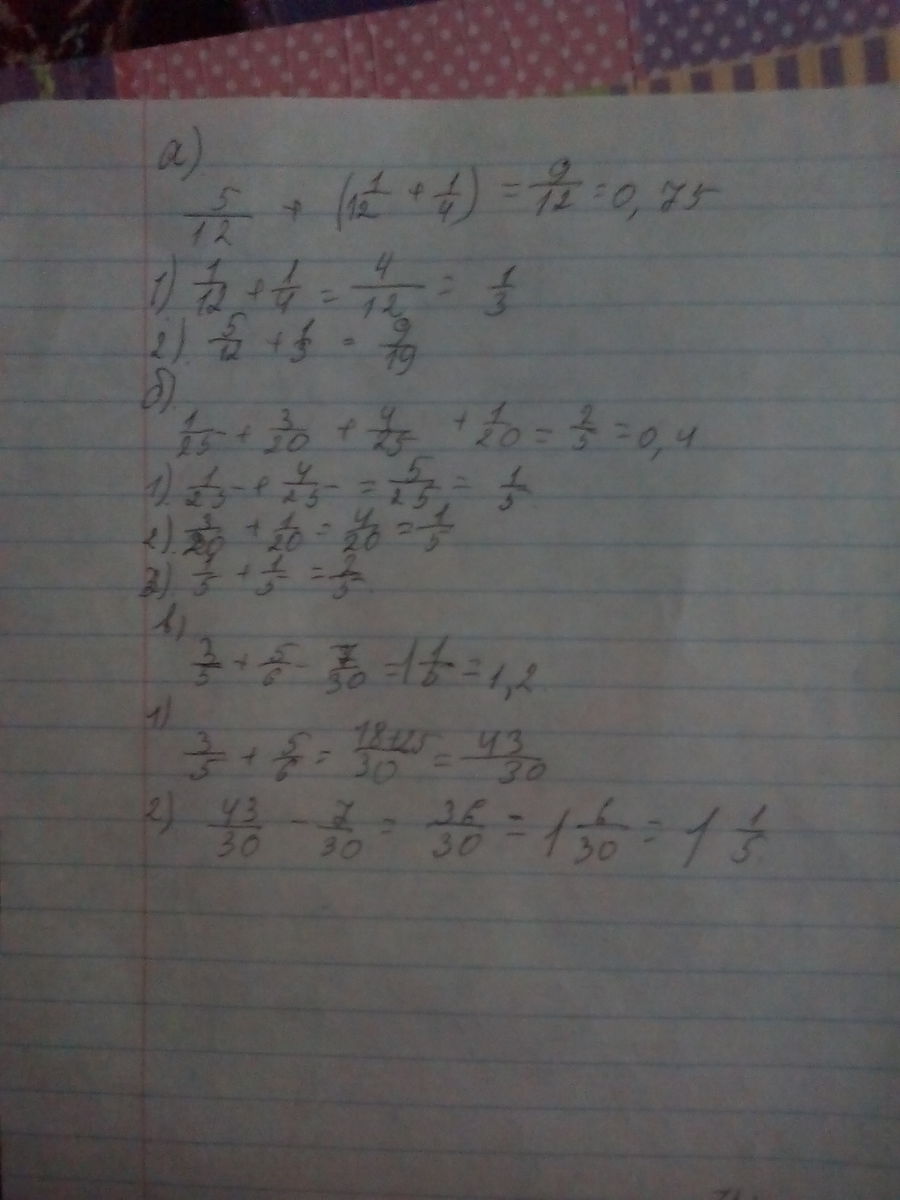 а)
5/12 + (1 1/12 + 1/4) = 9/12 = 0,75
1) 1/12 + 1/4 = 4/12 = 1/3
2) 5/12 + 1/3 = 9/19
б)
1/25 + 3/20 + 4/25 + 1/20 = 2/5 = 0,4
1) 1/25 + 4/25 = 5/25 = 1/5
2) 3/20 + 1/20 = 4/20 = 1/5
3) 1/5 + 1/5 = 2/5
в)
3/5 + 5/6 - 7/30 = 1 1/5 = 1,2
1)
3/5 + 5/6 = 18+25/30 = 43/30
2) 43/30 - 7/30 = 36/30 = 1 6/30 = 1 1/5